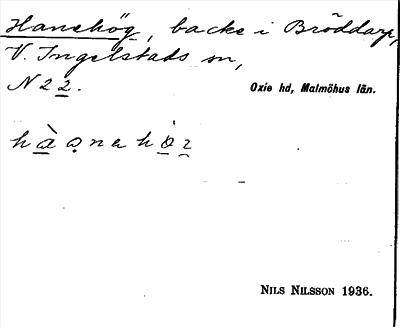 Hanehög, backe i Bröddarp,
V. Ingelstads sn,
N 2 2.
Oxie hd, Malmöhus län.
Nils Nilsson 1936.